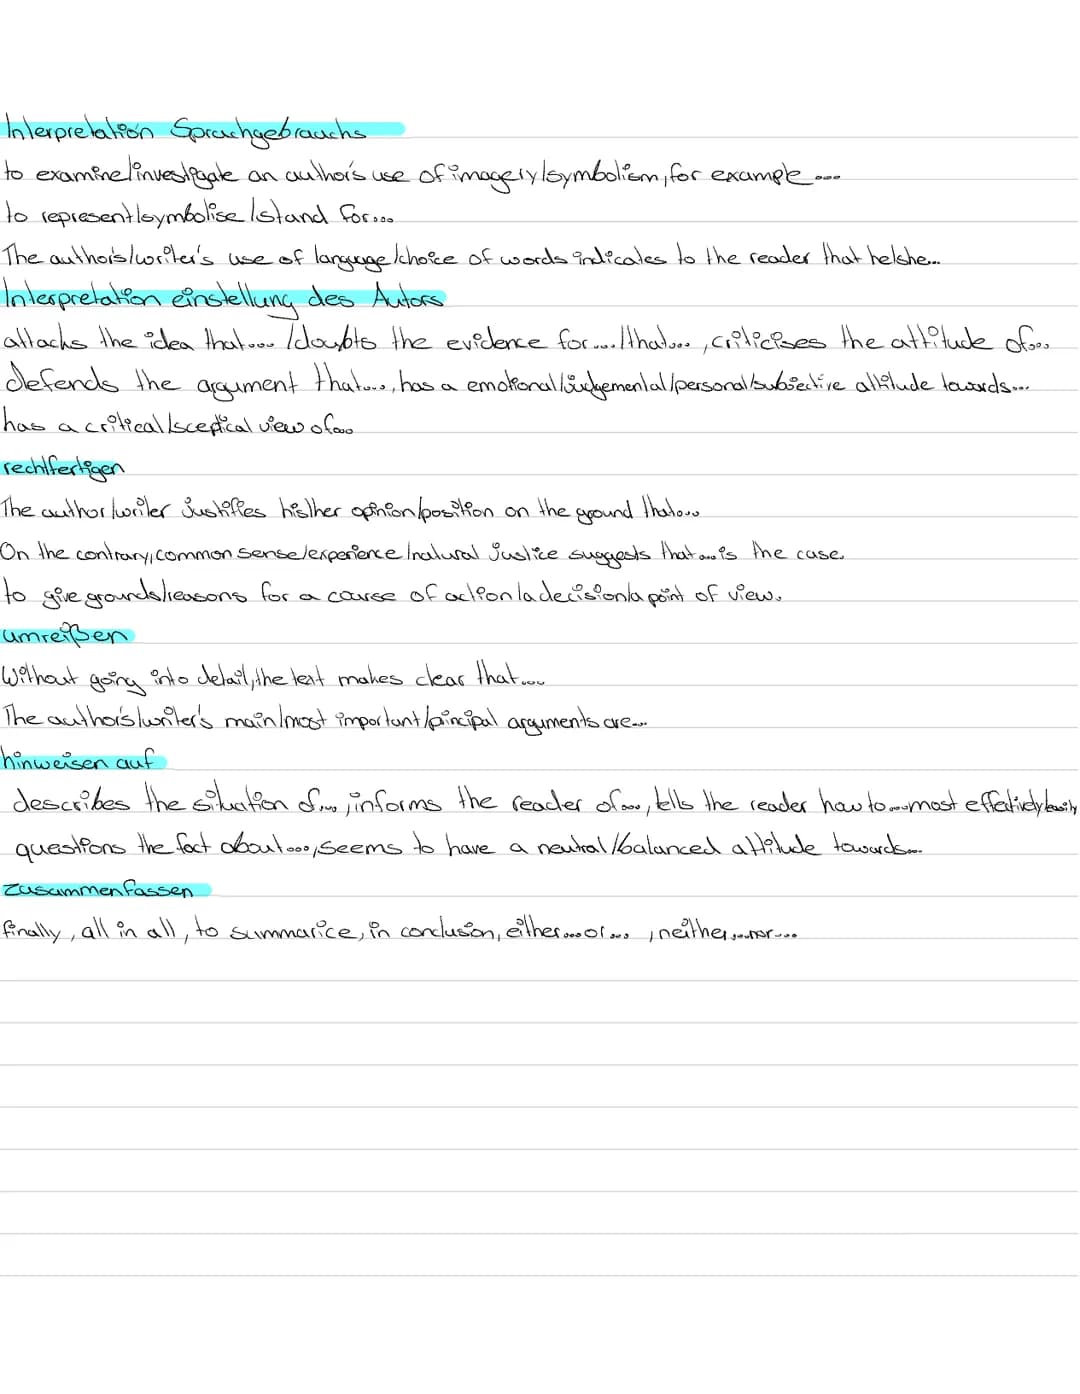 Interpretation Sprachgebrauchs
to examine/investigate an author's use of imagery/symbolism, for example ...
to represent/symbolise/stand for...
The author's/writer's use of language/choice of words indicates to the reader that he/she...
Interpretation einstellung des Autors
attacks the idea that.... /doubts the evidence for..../that..., criticises the attitude of...
defends the argument that...., has a emotional/judgemental/personal/subjective attitude towards...
has a critical/sceptical view of...
rechtfertigen
The author/writer justifies his/her opinion/position on the ground that....
On the contrary, common sense/experience/natural justice suggests that...is the case.
to give grounds/reasons for a course of action/a decision/a point of view.
umreißen
Without going into detail, the text makes clear that....
The author's/writer's main/most important/pincipal arguments are...
hinweisen auf
describes the situation of...., informs the reader of...., tells the reader how to....most effectively/easily
questions the fact about...., seems to have a neutral/balanced attitude towards...
zusammenfassen
finally, all in all, to summarice, in conclusion, either....or... , neither....nor...